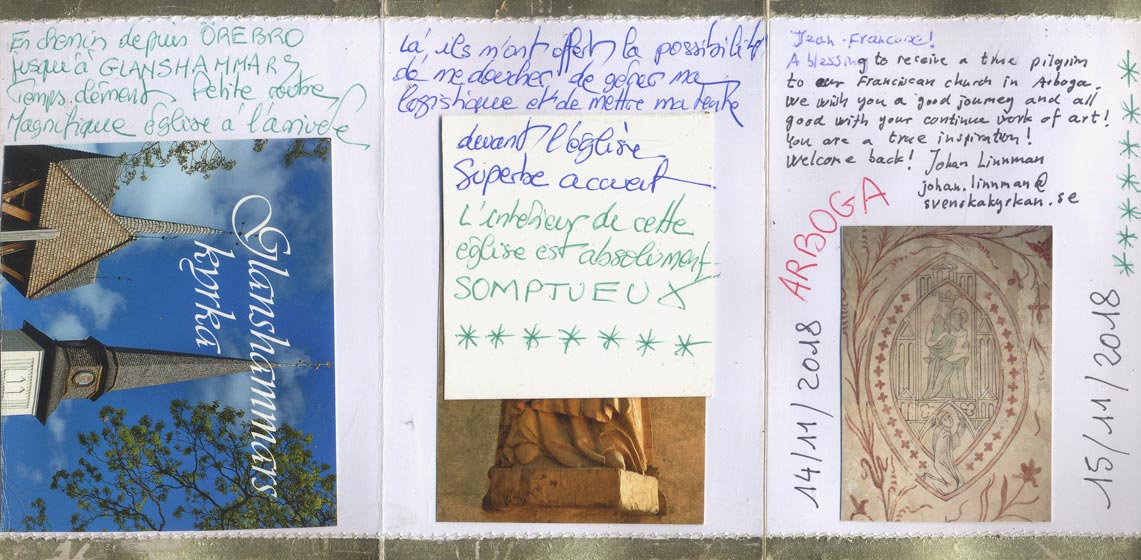 En chemin depuis ÖREBRO
jusqu'à GLANSHAMMARS
Temps clément Petite route
Magnifique église à l'arrivée
Glanshammars
kyrka
Là, ils m'ont offert la possibilité
de me doucher, de gérer ma
logistique et de mettre ma tente
devant l'église
Superbe accueil.
L'intérieur de cette
église est absolument
SOMPTUEUX
Jean-Francoise!
A blessing to receive a true pilgrim
to our Franciscan church in Arboga.
We wish you a good journey and all
good with your continue work of art!
You are a true inspiration!
Welcome back! Johan Linnman
johan.linnman@
svenskakyrkan.se
ARBOGA
14/11/2018
15/11/2018